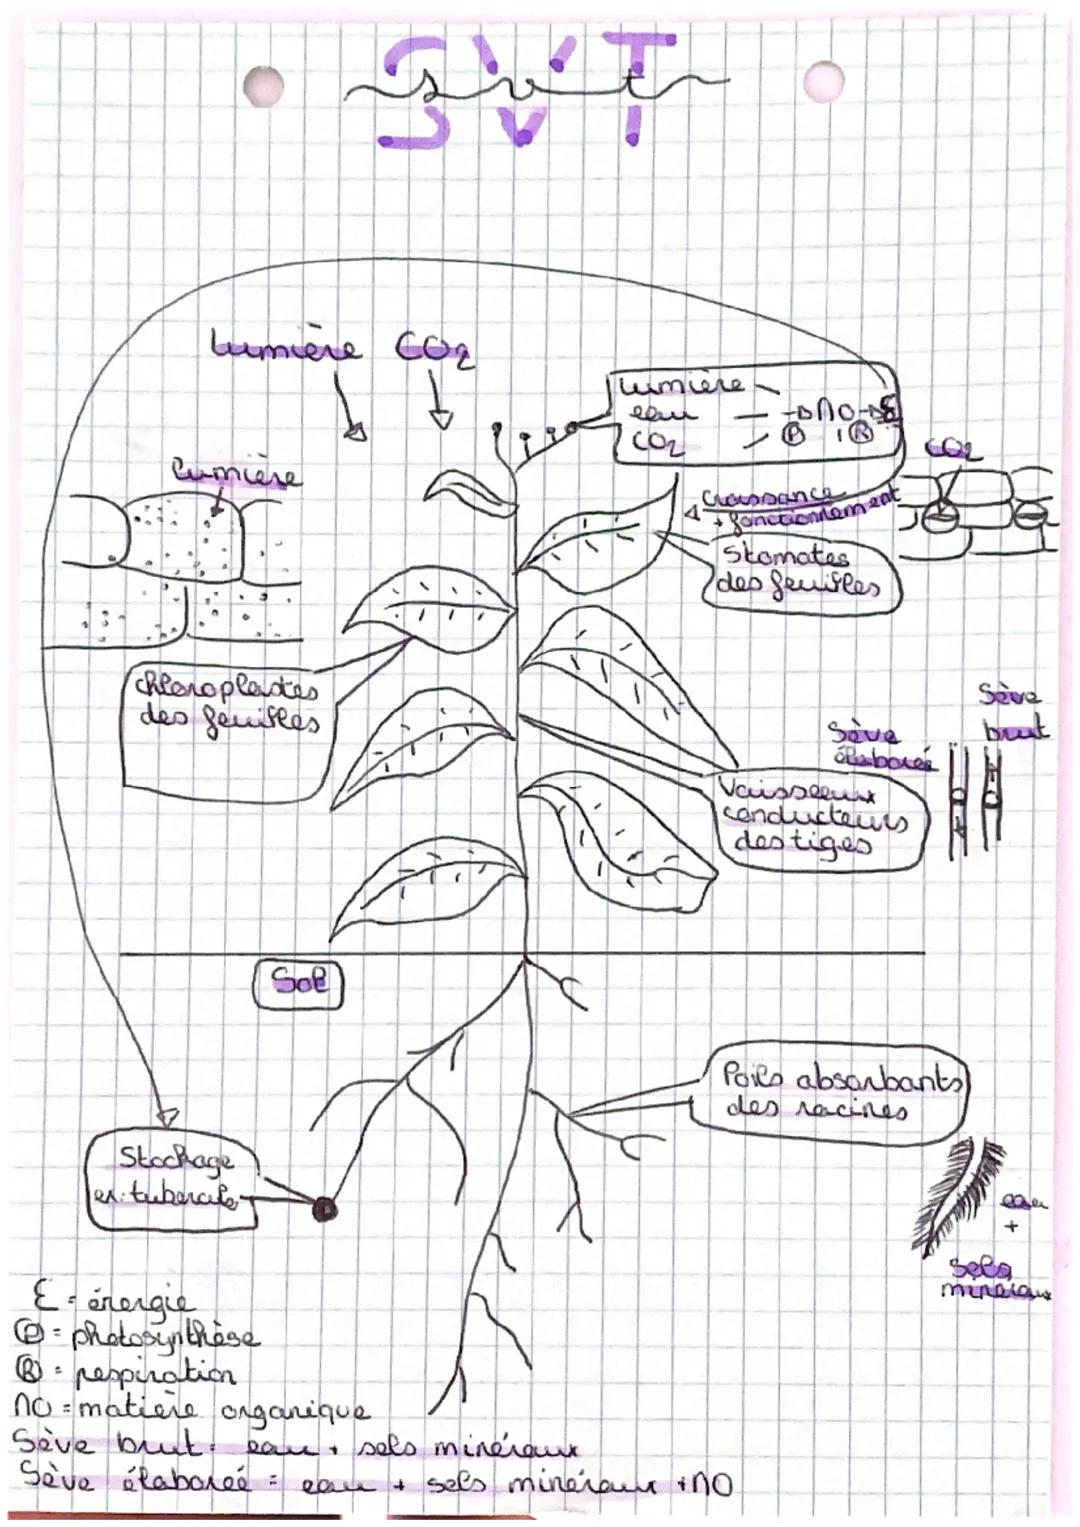 SVT
svt
lumière CO2
lumière
eau
CO2
→ MO → E
P R
CO2
lumière
croissance
+ fonctionnement
Stomates
des feuilles
chloroplastes
des feuilles
Sève
brut
Sève
élaboreé
Vaisseaux
conducteurs
des tiges
Sol
Poils absorbants
des racines
Stockage
ex: tubercule
eau
+
sels
minéraux
E = énergie
P = photosynthèse
R = respiration
MO = matière organique
Sève brut = eau + sels minéraux
Sève élaboreé = eau + sels minéraux + MO